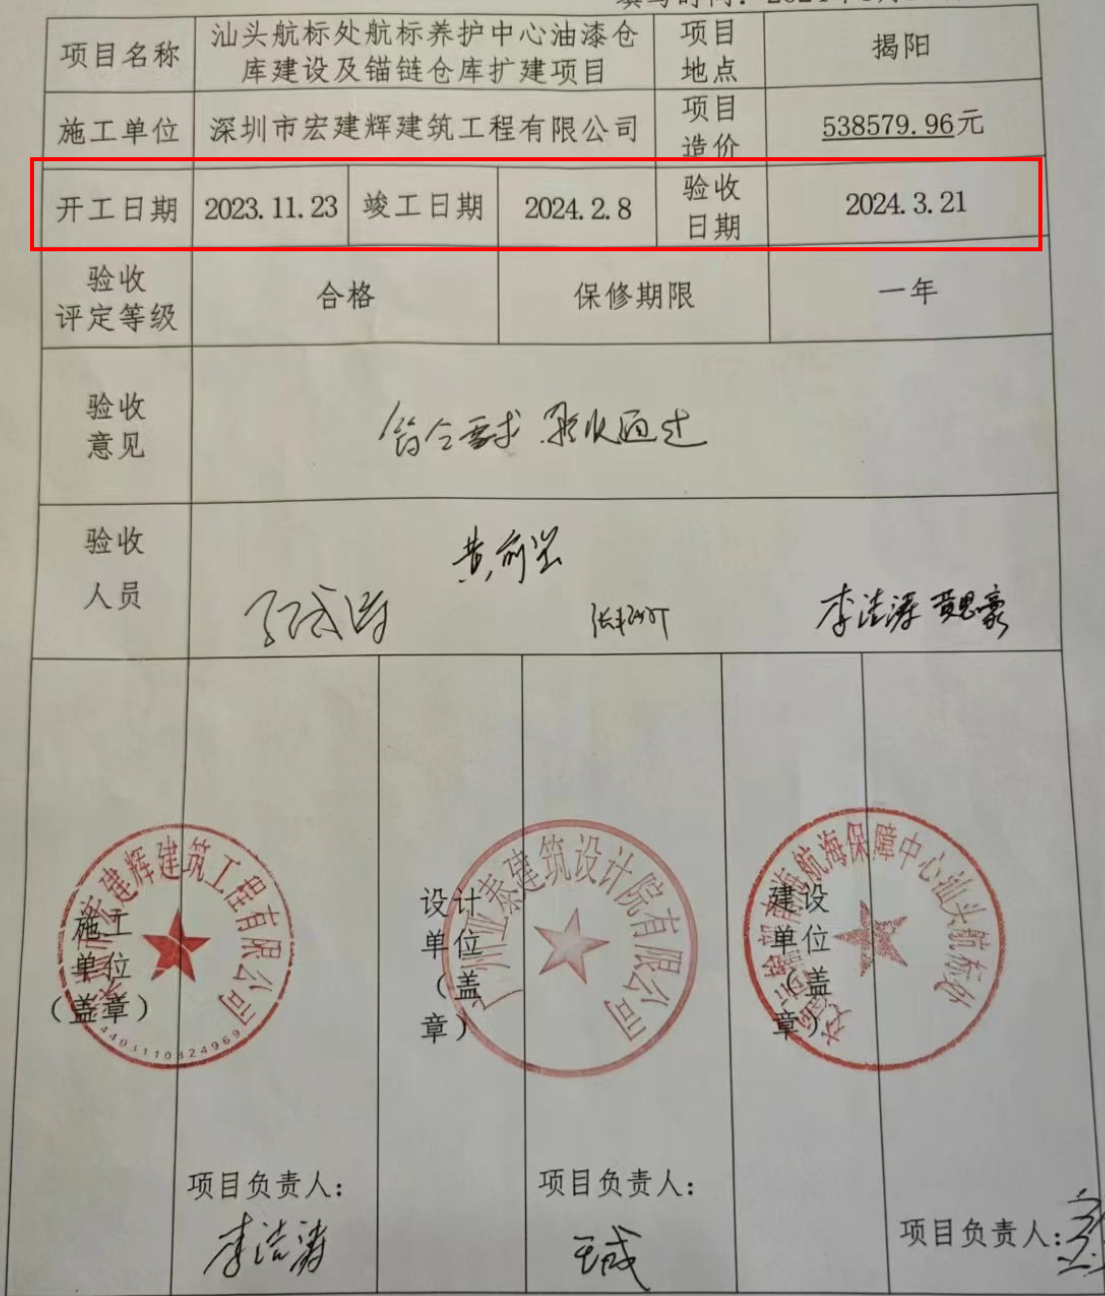 项目名称
汕头航标处航标养护中心油漆仓
库建设及锚链仓库扩建项目
项目
地点
揭阳
施工单位
深圳市宏建辉建筑工程有限公司
项目
造价
538579.96元
开工日期
2023.11.23
竣工日期
2024.2.8
验收
日期
2024.3.21
验收
评定等级
合格
保修期限
一年
验收
意见
符合要求 验收通过
验收
人员
李洁涛 黄思豪
施工
单位
（盖章）
宏建辉建筑工程有限公司
设计
单位
（盖
章）
广州亚泰建筑设计院有限公司
建设
单位
（盖
章）
南海航海保障中心汕头航标处
项目负责人：
李洁涛
项目负责人：
项目负责人：